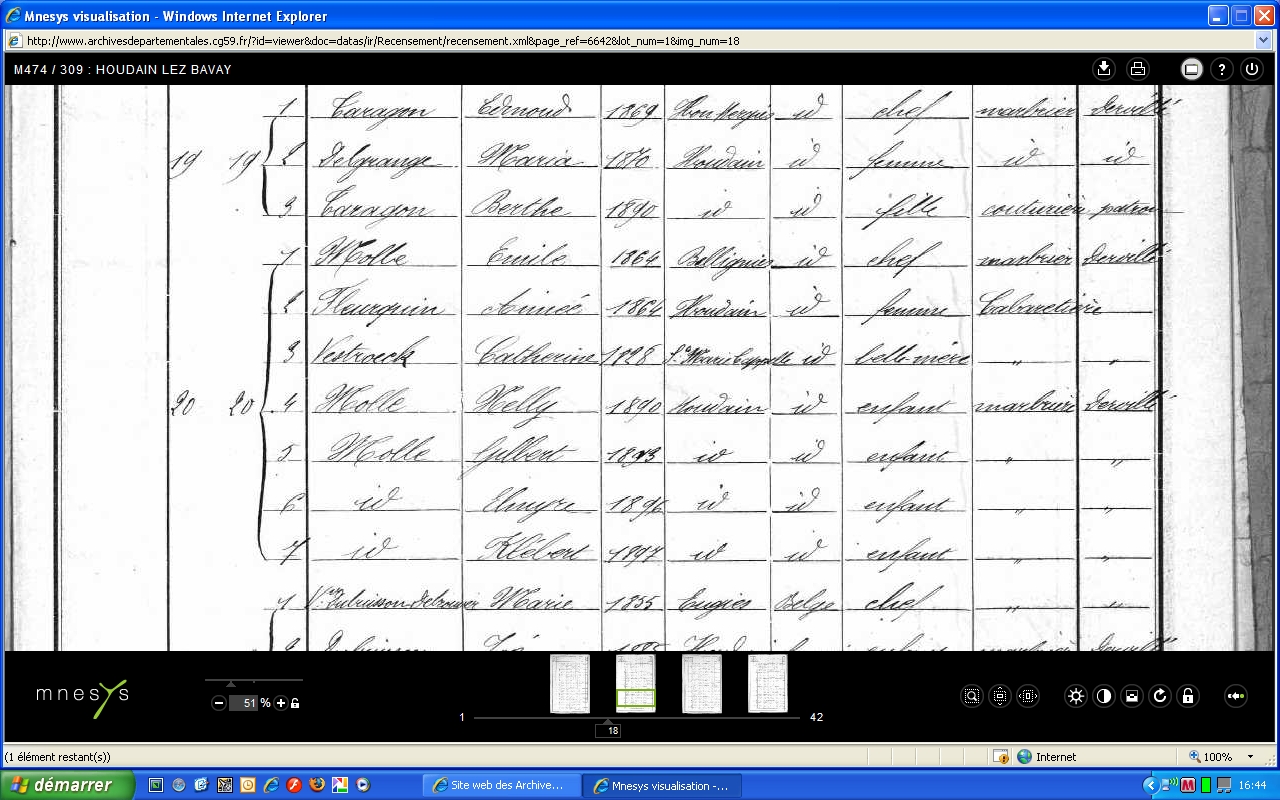 Mnesys visualisation - Windows Internet Explorer
http://www.archivesdepartementales.cg59.fr/?id=viewer&doc=datas/ir/Recensement/recensement.xml&page_ref=6642&lot_num=1&img_num=18
M474 / 309 : HOUDAIN LEZ BAVAY
1 Taragon Edmond 1869 Hon Hergies id chef marbrier Dervillé
19 19 2 Delgrange Maria 1870 Houdain id femme id id
3 Taragon Berthe 1890 id id fille couturière patron
1 Molle Emile 1864 Bellignies id chef marbrier Dervillé
2 Fleurquin Aimée 1864 Houdain id femme Cabaretière
3 Vestroeck Catherine 1828 Ste Marie Cappelle id belle-mère " "
20 20 4 Molle Nelly 1890 Houdain id enfant marbrière Dervillé
5 Molle Gilbert 1893 id id enfant " "
6 id Elmyre 1896 id id enfant " "
7 id Klébert 1897 id id enfant " "
1 Vve Marie 1855 Eugies Belge chef " "
mnesys
51 %
1 42
18
(1 élément restant(s))
Internet
100%
démarrer
Site web des Archive...
Mnesys visualisation -...
16:44